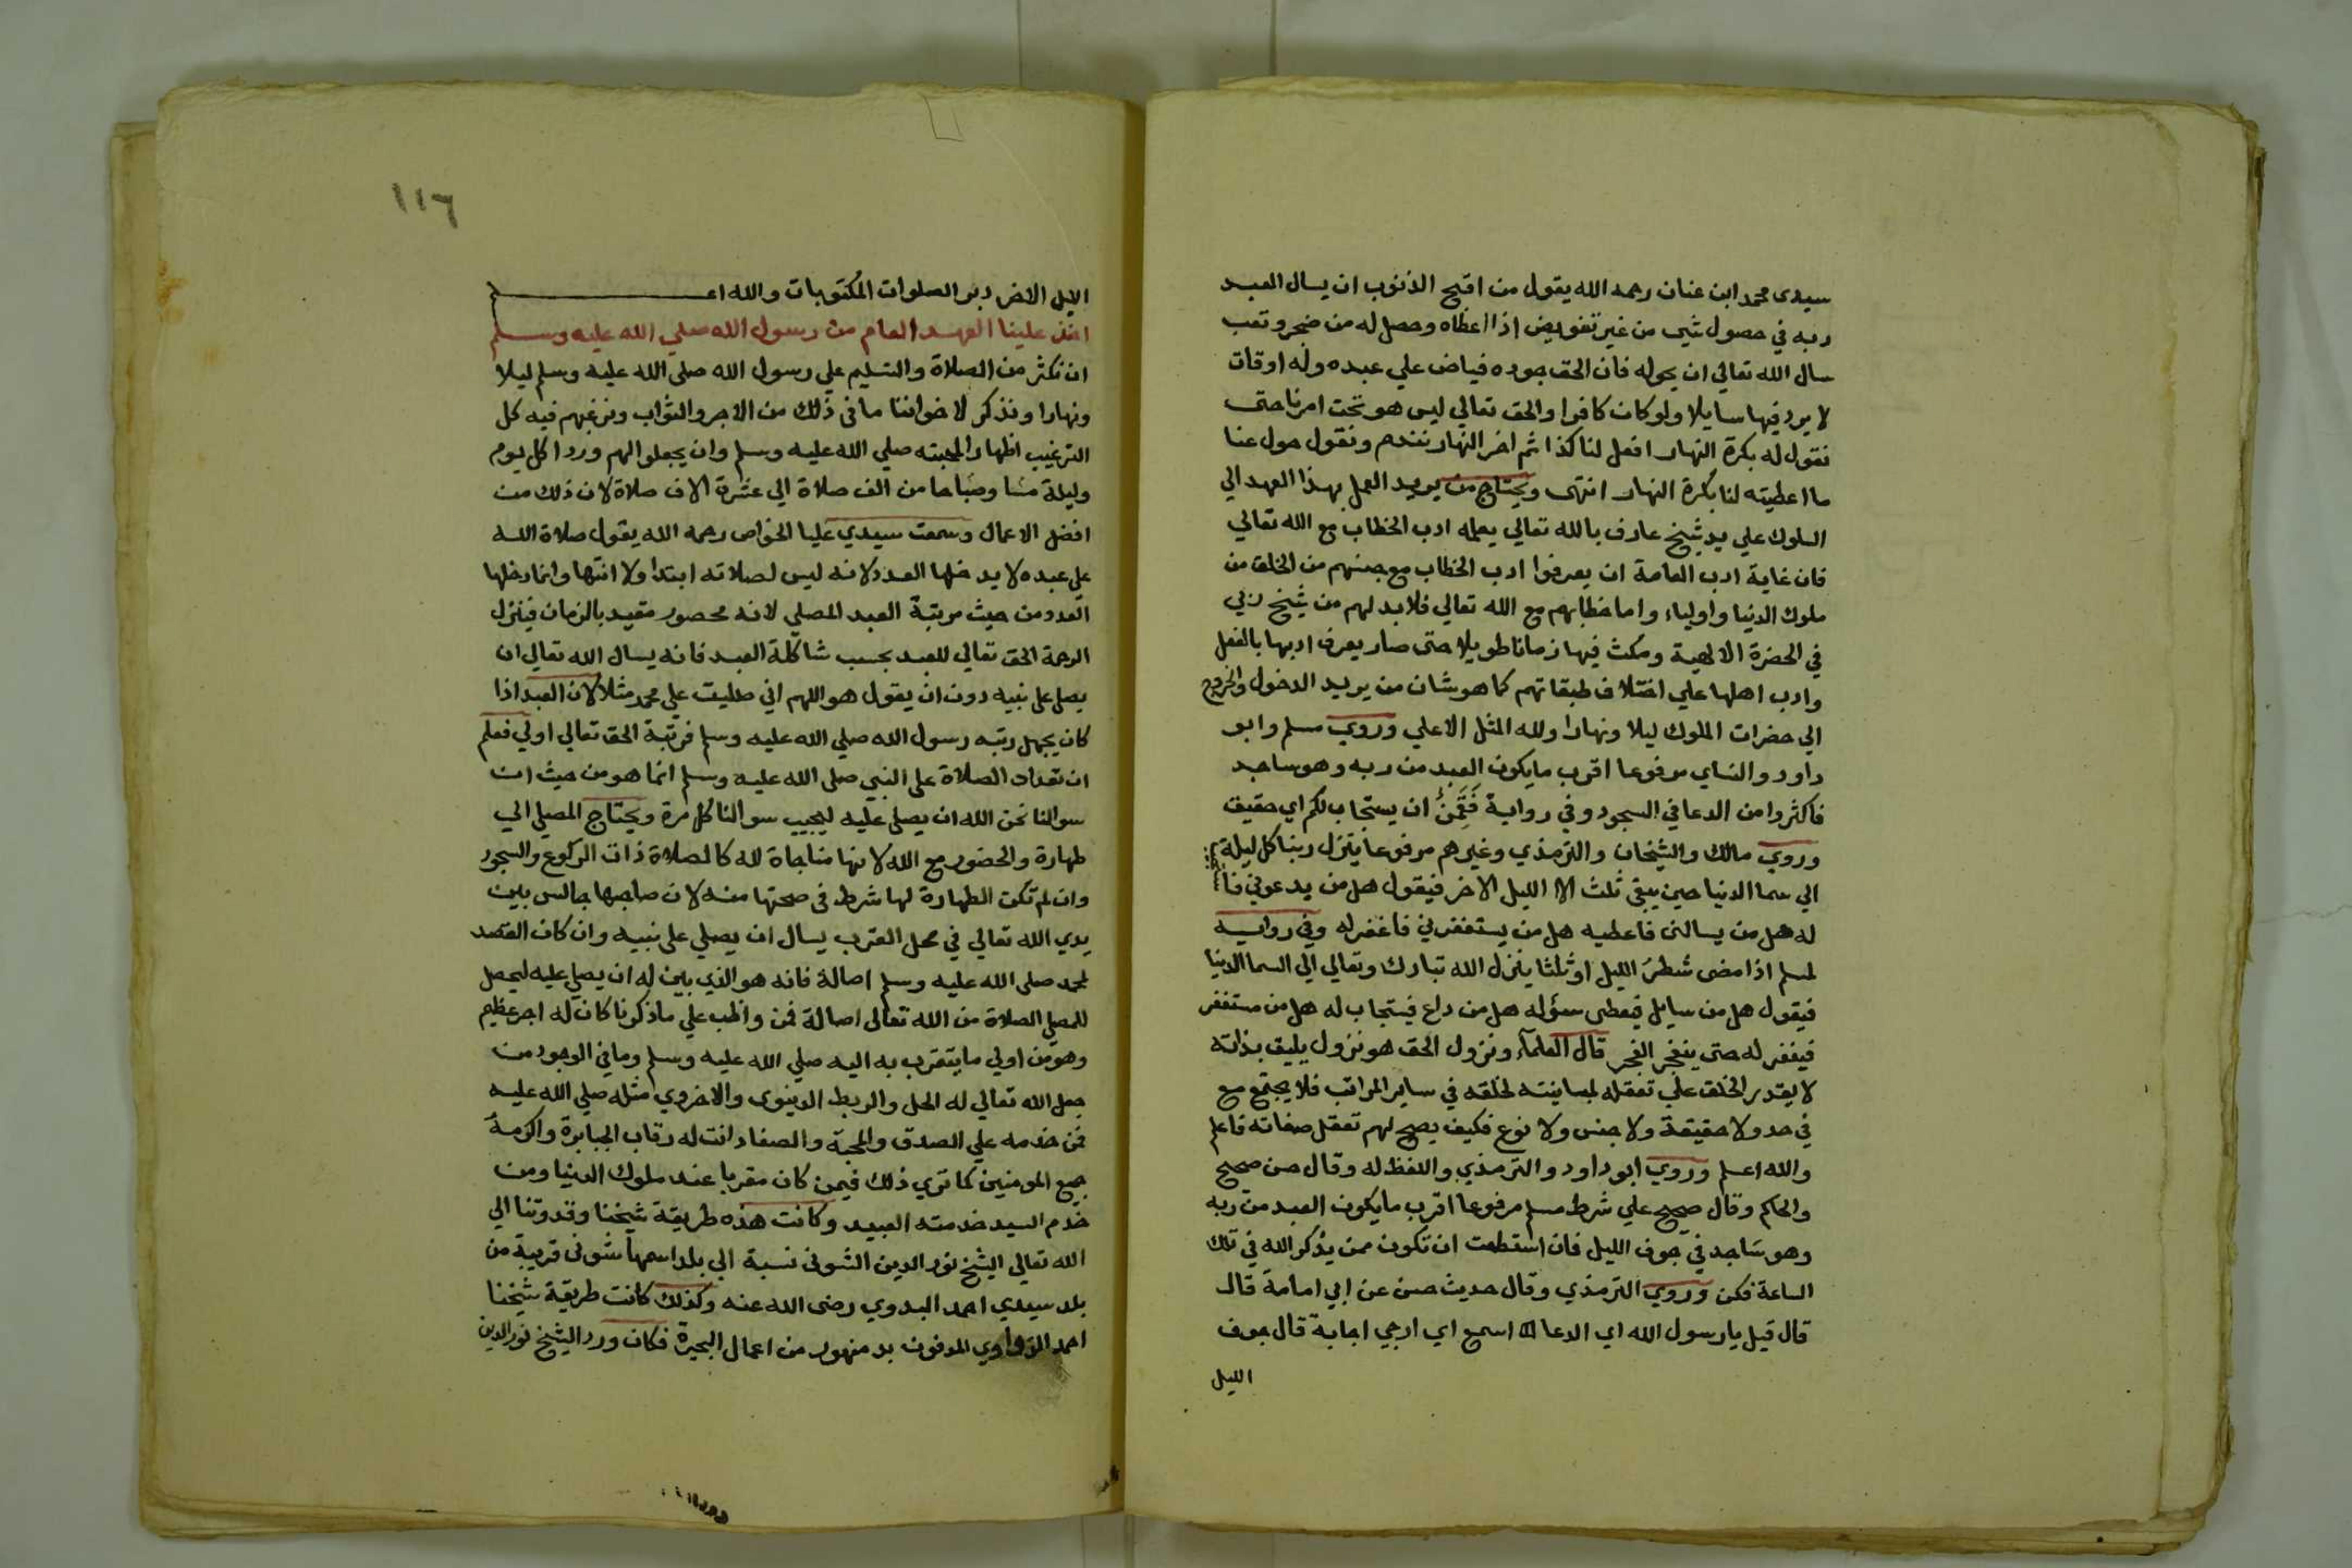 سيدى محمد ابن عنان رحمه الله يقول من اقبح الذنوب ان يسال العبد
ربه في حصول شي من غير تفويض اذا اعطاه وحصل له من ضجر وتعب
سال الله تعالي ان يحوله فان الحق جوده فياض علي عبده وله اوقات
لا يرد فيها سايلا ولو كان كافرا والحق تعالي ليس هو تحت امرنا حتى
نقول له بكرة النهار افعل لنا كذا ثم اخر النهار نندم ونقول حول عنا
ما اعطيته لنا بكرة النهار انتهى ويحتاج من يريد العمل بهذا العهد الي
السلوك علي يد شيخ عارف بالله تعالي يعلمه ادب الخطاب مع الله تعالي
فان غاية ادب العامة ان يعرفوا ادب الخطاب مع جنسهم من الخلق من
ملوك الدنيا واولياء واما خطابهم مع الله تعالي فلا بد لهم من شيخ ربي
في الحضرة الالهية ومكث فيها زمانا طويلا حتى صار يعرف ادبها بالفعل
وادب اهلها علي اختلاف طبقاتهم كما هو شان من يريد الدخول والخروج
الي حضرات الملوك ليلا ونهارا ولله المثل الاعلي وروي مسلم وابو
داود والنساي مرفوعا اقرب ما يكون العبد من ربه وهو ساجد
فاكثروا من الدعا في السجود وفي رواية فَقَمِنٌ ان يستجاب لكم اي حقيق
وروي مالك والشيخان والترمذي وغيرهم مرفوعا ينزل ربنا كل ليلة
الي سما الدنيا حين يبقي ثلث الليل الاخر فيقول هل من يدعوني فاستجيب
له هل من يسالنى فاعطيه هل من يستغفرني فاغفر له وفي رواية
لمسلم اذا مضى شطر الليل او ثلثا ينزل الله تبارك وتعالي الي السما الدنيا
فيقول هل من سايل فيعطى سؤله هل من داع فيستجاب له هل من مستغفر
فيغفر له حتى ينفجر الفجر قال العلمآء ونزول الحق هو نزول يليق بذاته
لا يقدر الخلق علي تعقله لمباينته لخلقه في ساير المراتب فلا يجتمع مع
في حد ولا حقيقة ولا جنس ولا نوع فكيف يصح لهم تعقل صفاته فاعلم
والله اعلم وروي ابو داود والترمذي واللفظ له وقال حسن صحيح
والحاكم وقال صحيح علي شرط مسلم مرفوعا اقرب ما يكون العبد من ربه
وهو ساجد في جوف الليل فان استطعت ان تكون ممن يذكر الله في تلك
الساعة فكن وروي الترمذي وقال حديث حسن عن ابي امامة قال
قال قيل يا رسول الله اي الدعا اسمع اي ارجي اجابة قال جوف
الليل
١١٦
الليل الاخر دبر الصلوات المكتوبات والله اعلم
اخذ علينا العهد العام من رسول الله صلي الله عليه وسلم
ان نكثر من الصلاة والتسليم علي رسول الله صلى الله عليه وسلم ليلا
ونهارا ونذكر لاخواننا ما فى ذلك من الاجر والثواب ونرغبهم فيه كل
الترغيب اظهارا لمحبته صلي الله عليه وسلم وان يجعلوا لهم وردا كل يوم
وليلة مسا وصباحا من الف صلاة الي عشرة الاف صلاة لان ذلك من
افضل الاعمال وسمعت سيدي عليا الخواص رحمه الله يقول صلاة الله
علي عبده لا يدخلها العدد لانه ليس لصلاته ابتدا ولا انتها وانما دخلها
العدد من حيث مرتبة العبد المصلي لانه محصور مقيد بالزمان فينزل
الرحمة الحق تعالي للعبد بحسب شاكلة العبد فانه يسال الله تعالي ان
يصلي على نبيه دون ان يقول هو اللهم اني صليت علي محمد مثلا لان العبد اذا
كان يجهل رتبه رسول الله صلي الله عليه وسلم فرتبة الحق تعالي اولي فعلم
ان تعداد الصلاة على النبي صلي الله عليه وسلم انما هو من حيث ان
سوالنا نحن الله ان يصلي عليه ليجيب سوالنا كل مرة ويحتاج المصلي الي
طهارة والحضور مع الله لانها مناجاة لله كالصلاة ذات الركوع والسجود
وان لم تكن الطهارة لها شرط فى صحتها منه لان صاحبها جالس بين
يدي الله تعالي في محل القرب يسال ان يصلي على نبيه وان كان القصد
لمحمد صلى الله عليه وسلم اصالة فانه هو الذي بين له ان يصلي عليه ليحصل
للمصلي الصلاة من الله تعالى اصالة فمن واظب علي ما ذكرنا كان له اجر عظيم
وهو من اولي ما يتقرب به اليه صلي الله عليه وسلم وما في الوجود من
جعل الله تعالي له الحل والربط الدينوى والاخروي مثله صلي الله عليه
فمن خدمه علي الصدق والمحبة والصفا دانت له رقاب الجبابرة واكرمه
جميع المومنين كما تري ذلك فيمن كان مقربا عند ملوك الدنيا ومن
خدم السيد خدمته العبيد وكانت هذه طريقة شيخنا وقدوتنا الي
الله تعالي الشيخ نور الدين الشونى نسبة الي بلد اسمها شونى قريبة من
بلد سيدي احمد البدوي رضى الله عنه وكذلك كانت طريقة شيخنا
احمد الزواوي المدفون بدمنهور من اعمال البحيرة فكان ورد الشيخ نور الدين